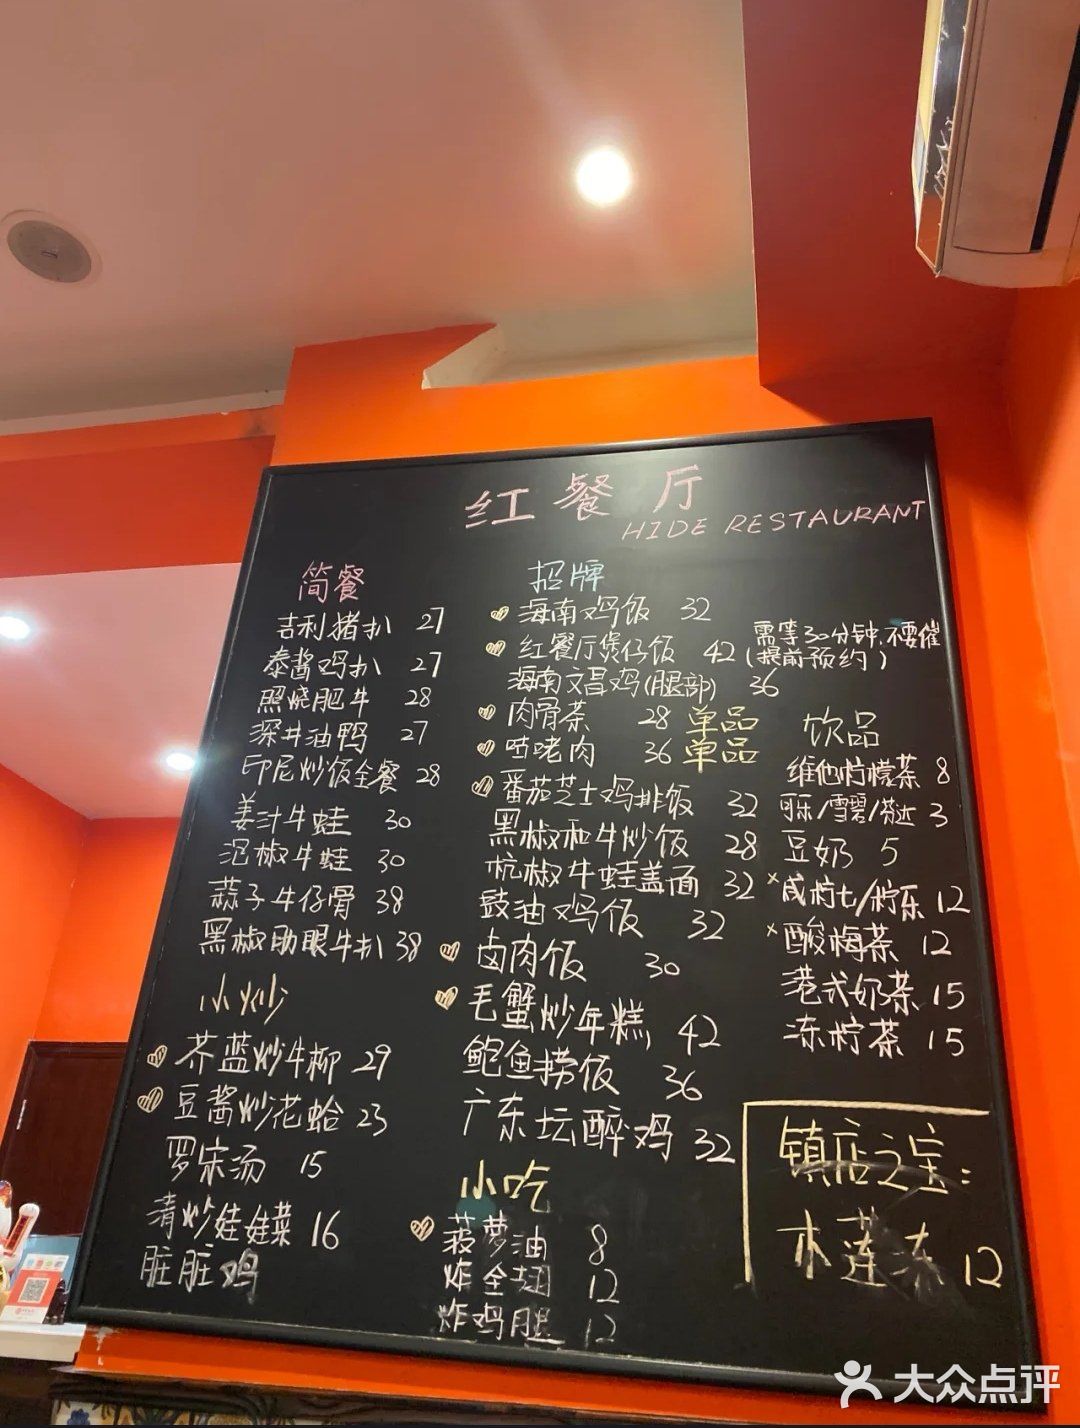 红餐厅
HIDE RESTAURANT
简餐
吉利猪扒 27
泰酱鸡扒 27
照烧肥牛 28
深井油鸭 27
印尼炒饭全餐 28
姜汁牛蛙 30
泡椒牛蛙 30
蒜子牛仔骨 38
黑椒肋眼牛扒 38
小炒
芥蓝炒牛柳 29
豆酱炒花蛤 23
罗宋汤 15
清炒娃娃菜 16
脏脏鸡
招牌
海南鸡饭 32
红餐厅煲仔饭 42 需等30分钟,不要催
(提前预约)
海南文昌鸡(腿部) 36
肉骨茶 28 单品
咕咾肉 36 单品
番茄芝士鸡排饭 32
黑椒和牛炒饭 28
杭椒牛蛙盖面 32
豉油鸡饭 32
卤肉饭 30
毛蟹炒年糕 42
鲍鱼捞饭 36
广东坛醉鸡 32
小吃
菠萝油 8
炸全翅 12
炸鸡腿 12
饮品
维他柠檬茶 8
可乐/雪碧/芬达 3
豆奶 5
咸柠七/柠乐 12
酸梅茶 12
港式奶茶 15
冻柠茶 15
镇店之宝:
木莲冻 12
大众点评